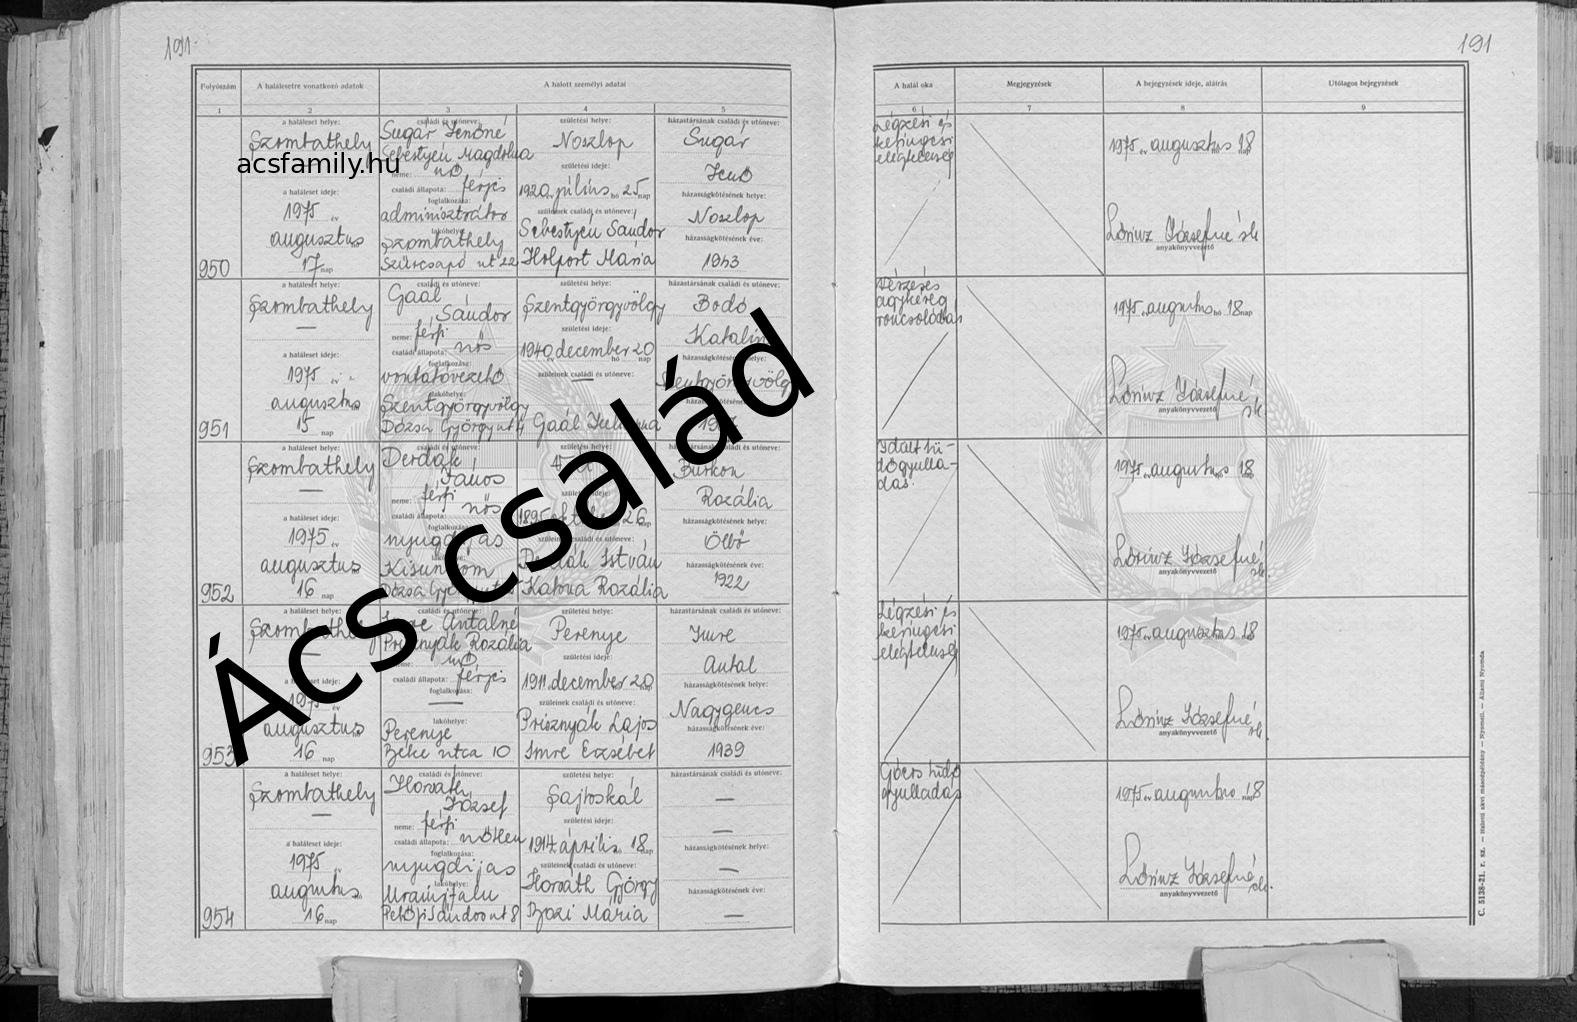 191.
191
Folyószám
A halálesetre vonatkozó adatok
A halott személyi adatai
A halál oka
Megjegyzések
A bejegyzések ideje, aláírás
Utólagos bejegyzések
1 2 3 4 5 6 7 8 9
950
a haláleset helye:
Szombathely
a haláleset ideje:
1975 év
augusztus hó
17 nap
családi és utóneve:
Sugár Jenőné
Sebestyén Magdolna
neme: nő
családi állapota: férjes
foglalkozása:
adminisztrátor
lakóhelye:
Szombathely
út 22
születési helye:
Noszlop
születési ideje:
1920 év július hó 25 nap
szüleinek családi és utóneve:
Sebestyén Sándor
Holport Mária
házastársának családi és utóneve:
Sugár
Jenő
házasságkötésének helye:
Noszlop
házasságkötésének éve:
1943
Légzési és
keringési
elégtelenség
1975 év augusztus hó 18 nap
Lőrincz Józsefné sk
anyakönyvvezető
951
a haláleset helye:
Szombathely
a haláleset ideje:
1975 év
augusztus
15 nap
családi és utóneve:
Gaál
Sándor
neme: férfi
családi állapota: nős
foglalkozása:
vontatóvezető
lakóhelye:
Szentgyörgyvölgy
Dózsa György
születési helye:
Szentgyörgyvölgy
születési ideje:
1940 év december hó 20 nap
szüleinek családi és utóneve:
Gaál
házastársának családi és utóneve:
Bodó
Katalin
házasságkötésének helye:
Szentgyörgyvölgy
Vérzéses
agykéreg
roncsolódás
1975 augusztus hó 18 nap
Lőrincz Józsefné
sk
anyakönyvvezető
952
a haláleset helye:
Szombathely
a haláleset ideje:
1975 év
augusztus
16 nap
családi és utóneve:
Derdák
János
neme: férfi
családi állapota: nős
foglalkozása:
nyugdíjas
Dózsa
születési helye:
1895 26 nap
István
Katona Rozália
Rozália
házasságkötésének helye:
Ölbő
házasságkötésének éve:
1922
Idült tü-
dőgyulla-
dás.
1975 év augusztus hó 18 nap
Lőrincz Józsefné
sk.
anyakönyvvezető
953
a haláleset helye:
Szombathely
a haláleset ideje:
1975 év
augusztus
16 nap
családi és utóneve:
Imre Antalné
Prisznyák Rozália
neme: nő
családi állapota: férjes
foglalkozása:
lakóhelye:
Perenye
Béke utca 10
születési helye:
Perenye
születési ideje:
1911 év december hó 20 nap
szüleinek családi és utóneve:
Prisznyák Lajos
Imre Erzsébet
házastársának családi és utóneve:
Imre
Antal
házasságkötésének helye:
Nagygencs
házasságkötésének éve:
1939
Légzési és
keringési
elégtelenség
1975 év augusztus hó 18
Lőrincz Józsefné
sk.
anyakönyvvezető
954
a haláleset helye:
Szombathely
a haláleset ideje:
1975 év
augusztus hó
16 nap
családi és utóneve:
Horváth
József
neme: férfi
családi állapota: nőtlen
foglalkozása:
nyugdíjas
lakóhelye:
Uraiújfalu
Petőfi Sándor út 8
születési helye:
Sajtoskál
születési ideje:
1914 április hó 18 nap
szüleinek családi és utóneve:
Horváth György
Bozi Mária
házastársának családi és utóneve:
házasságkötésének helye:
házasságkötésének éve:
Gócos tüdő
gyulladás
1975 év augusztus hó 18 nap
Lőrincz Józsefné
sk.
anyakönyvvezető
C. 5138-21. r. sz. — Halotti akvi másodpéldány — Nyomell. — Állami Nyomda
acsfamily.hu
Ács család